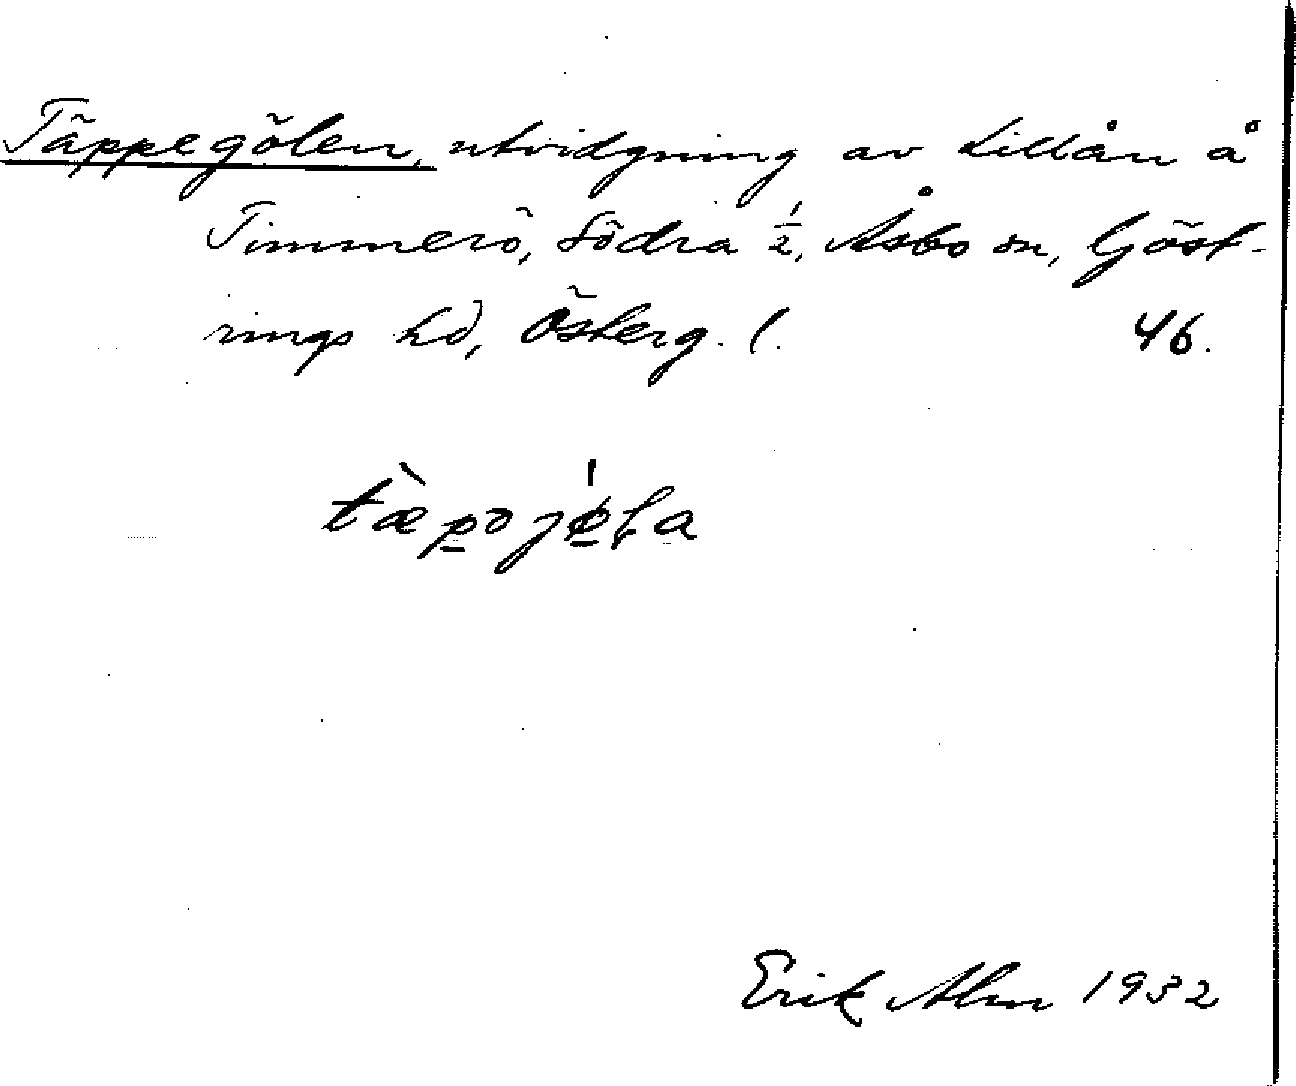 Täppegölen, utvidgning av Lillån å
Timmerö, Södra 1/2, Åsbo sn, Göst-
rings hd, Österg. l. 46.
tæ̀pəjø̍ɽa
Erik Alm 1932